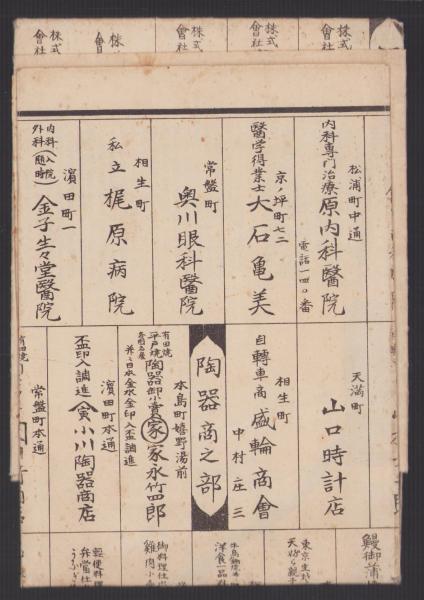 株式
會社
株式
會社
株式
會社
株
會
松浦町中通
内科専門治療 原内科醫院
電話一四〇番
京ノ坪町七二
醫学得業士 大石亀美
常盤町
奥川眼科醫院
相生町
私立 梶原病院
濱田町一
内科
外科
(入院随時)
金子生々堂醫院
天満町
山口時計店
相生町
自轉車商 盛輪商會
中村庄三
陶器商之部
木島町嬉野湯前
有田焼
平戸焼
陶器卸小賣 家 家永竹四郎
并ニ日本金水金印入盃調進
濱田町本通
盃印入調進 寅 小川陶器商店
常盤町本通
有田焼
鰻御蒲
東京生
洋食一品
御料理仕
雞肉
軽便料理
弁當仕